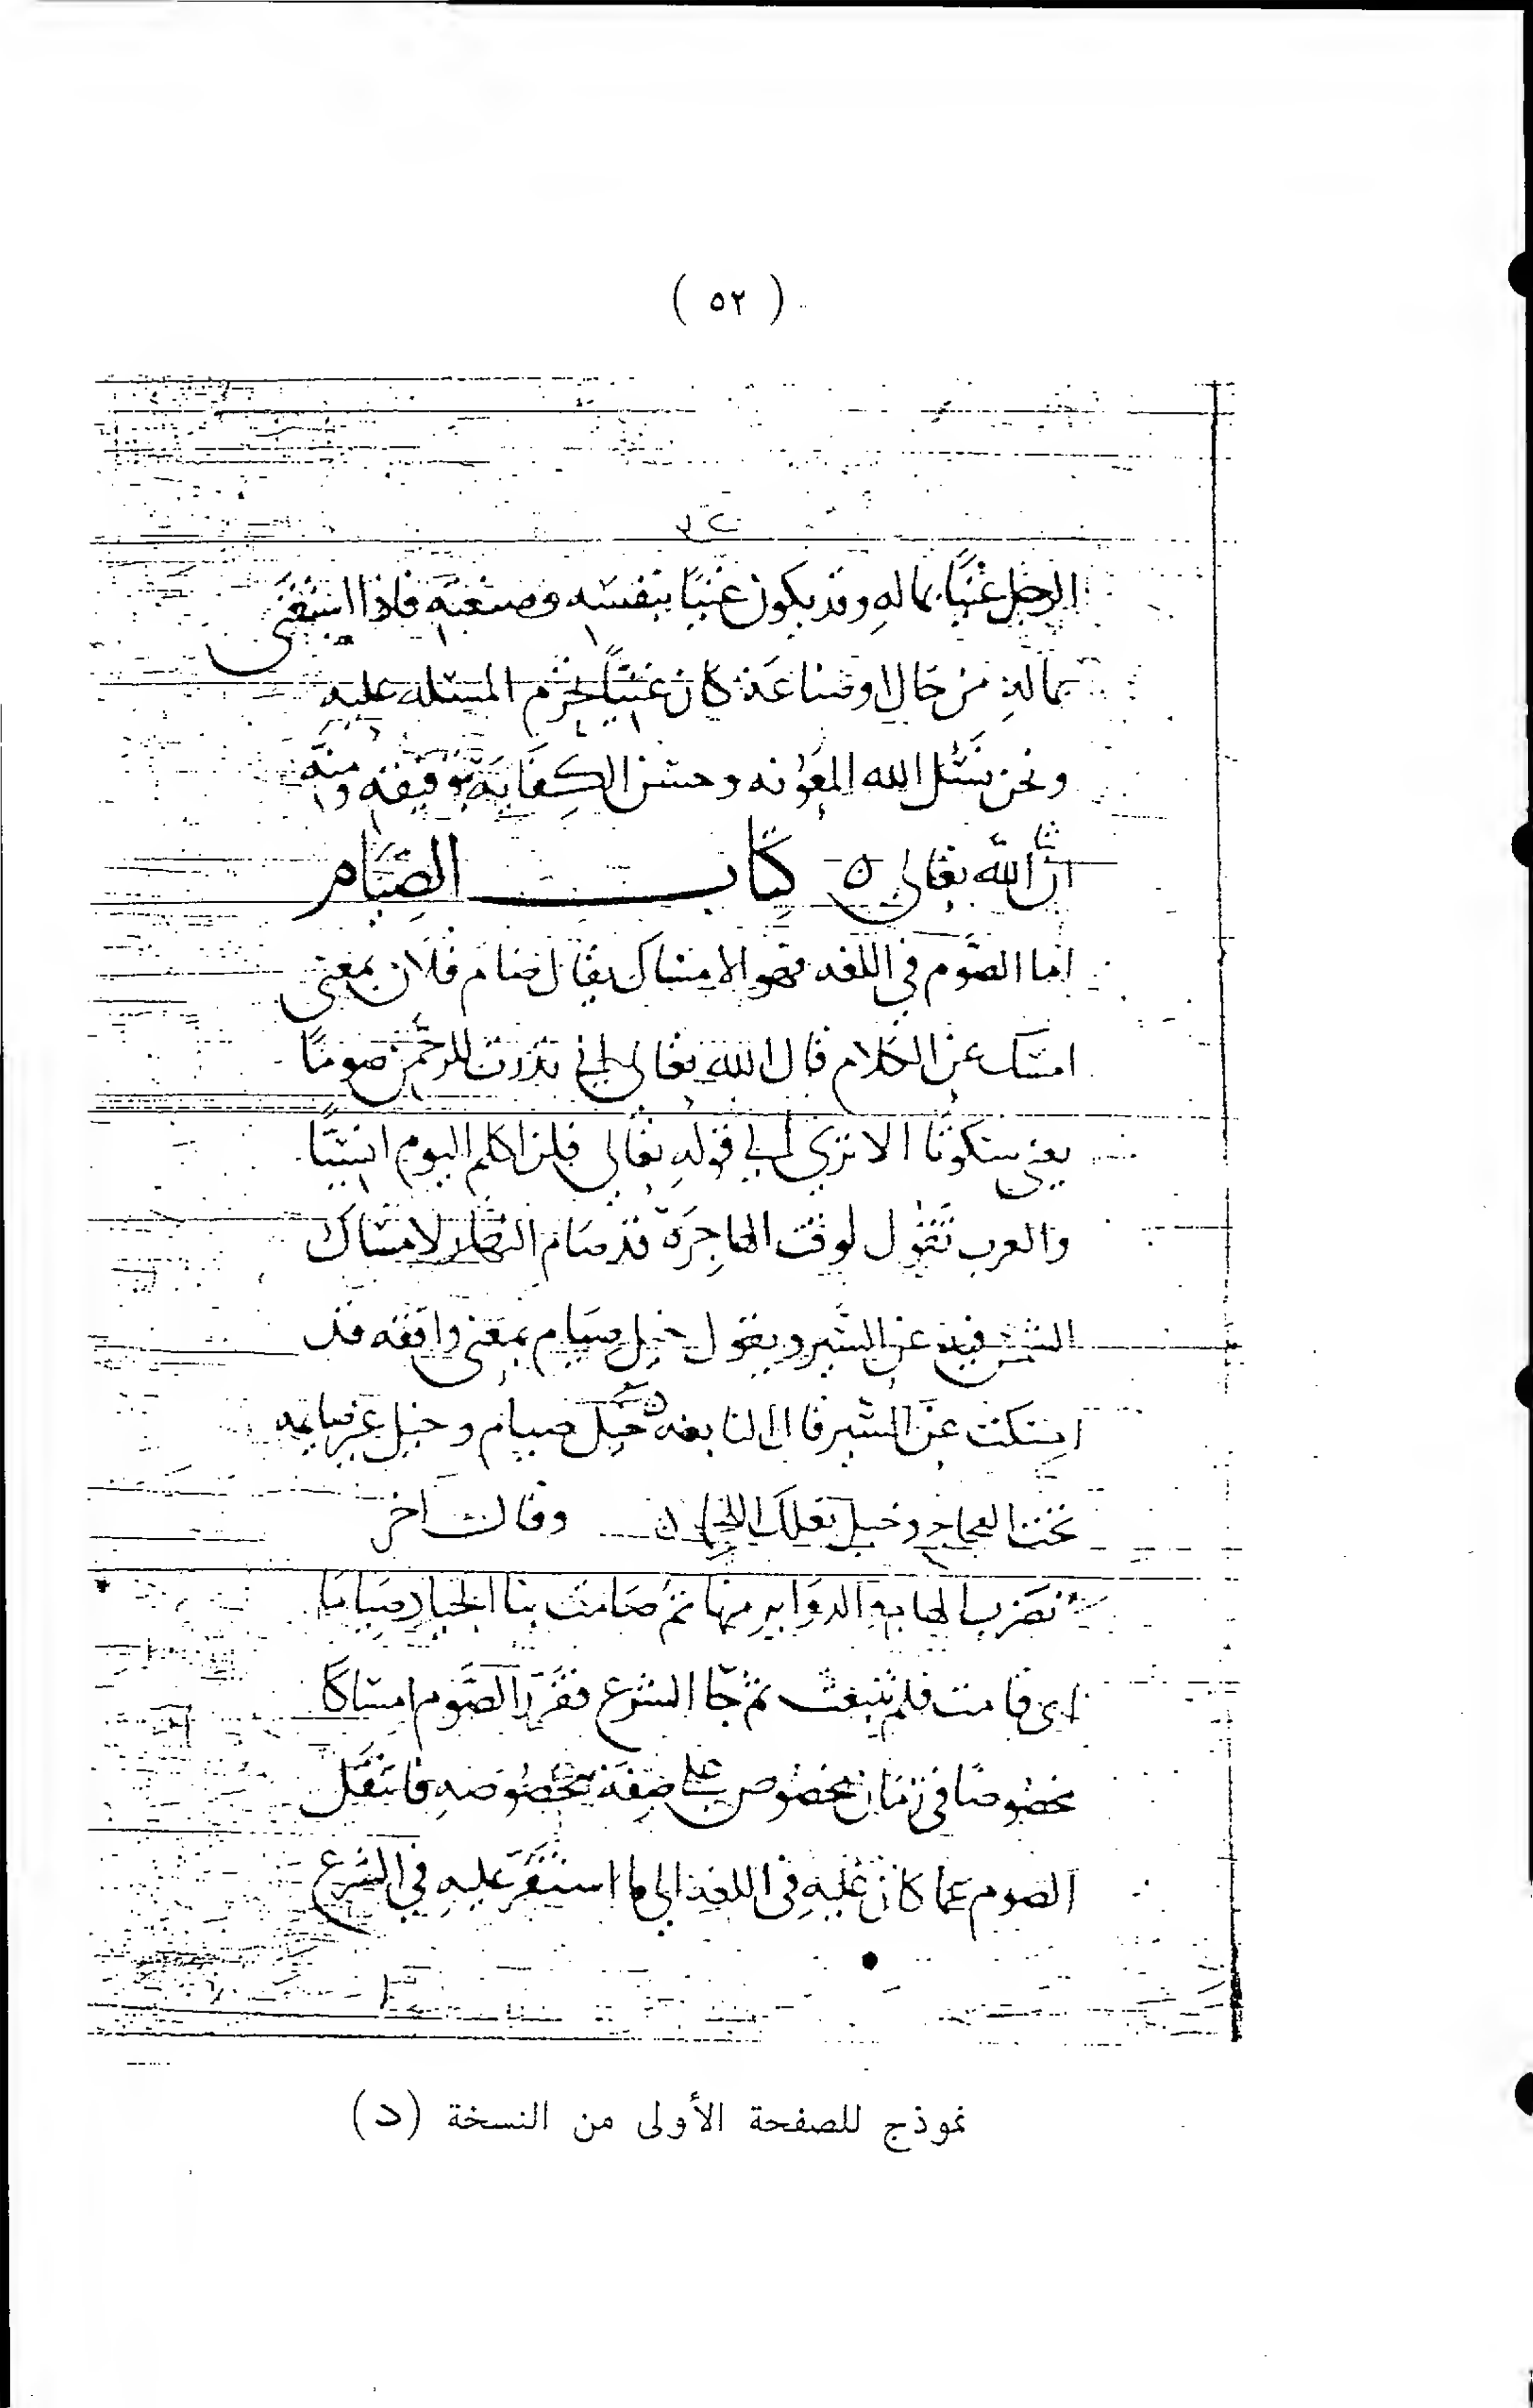 ( ٥٢ )
الرجل غنيًا بماله وقد يكون غنيًا بنفسه وصنعته فاذا استغنى
بماله من حال او صناعة كان غنيًا تحرم المسئله عليه
ونحن نسئل الله المعونه وحسن الكِفَاية بتوفيقه ومنه
ان الله تعالى ٥ كتاب الصِيَام
اما الصَّوم في اللغه فهو الامساك يقال صام فلان بمعنى
امسك عن الكلام قال الله تعالى اني نذرت للرحمن صومًا
يعني سكوتا الا ترى الى قوله تعالى فلن اكلم اليوم انسيًّا
والعرب تَقول لوقت الهاجِرَة قد صَام النهار لامسَاك
الشمس فيه عن السَّير ويقول خيل صِيَام بمعنى واقفه قد
امسكت عن السَّير قال النابغه خيل صيام وخيل غير صايمه
تحت العجاج وخيل تعلك اللجما ٥ وقال اخر
الدوَابر منها ثم صَامت بنا الجياد صِيَامَا
اى قامت فلم تنبعث ثم جَا الشرع فقرَّر الصَّوم امساكًا
مخصُوصًا في زمَان مخصُوص على صِفَة مخصُوصَه فانتقَل
الصوم عما كان عَليهِ في اللغه الى ما استقرَّ عليه في الشرع
نموذج للصفحة الأولى من النسخة (د)